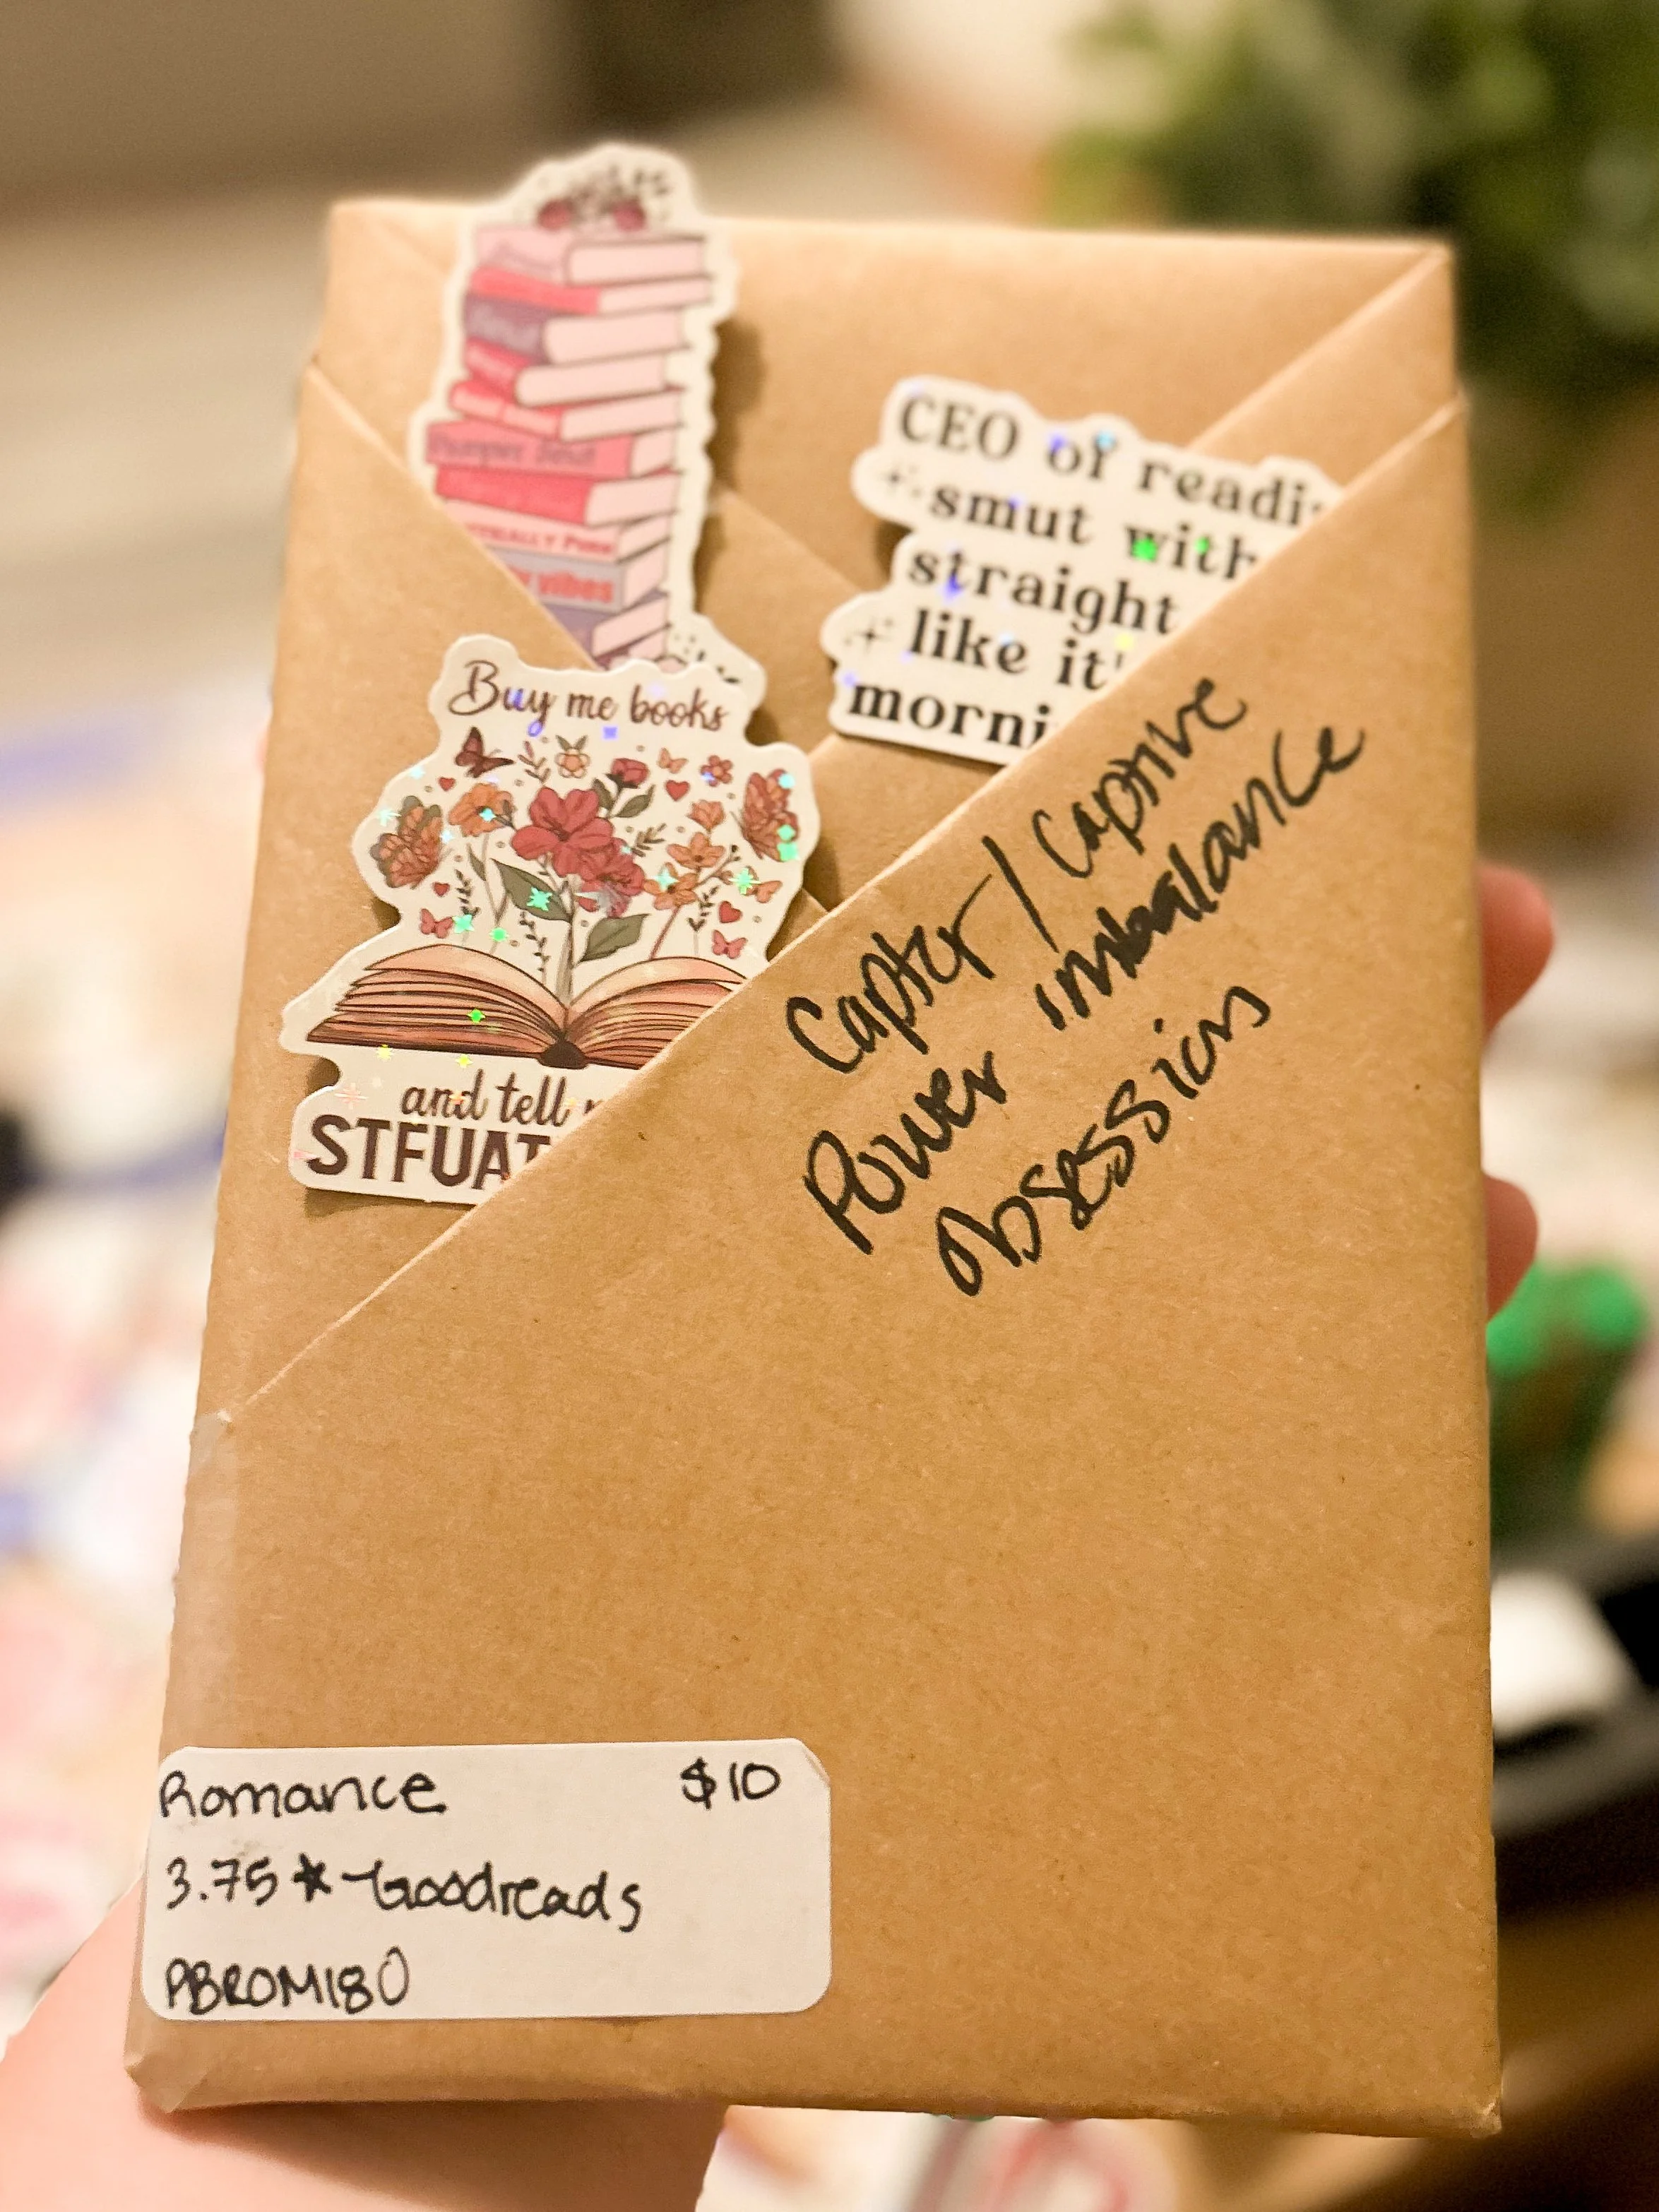 Pumper
vibes
CEO of readi
smut with
straight
like it'
morni
Buy me books
and tell
STFUAT
Capter / Captive
Power imbalance
obsession
Romance $10
3.75 ★ - Goodreads
PBROM180